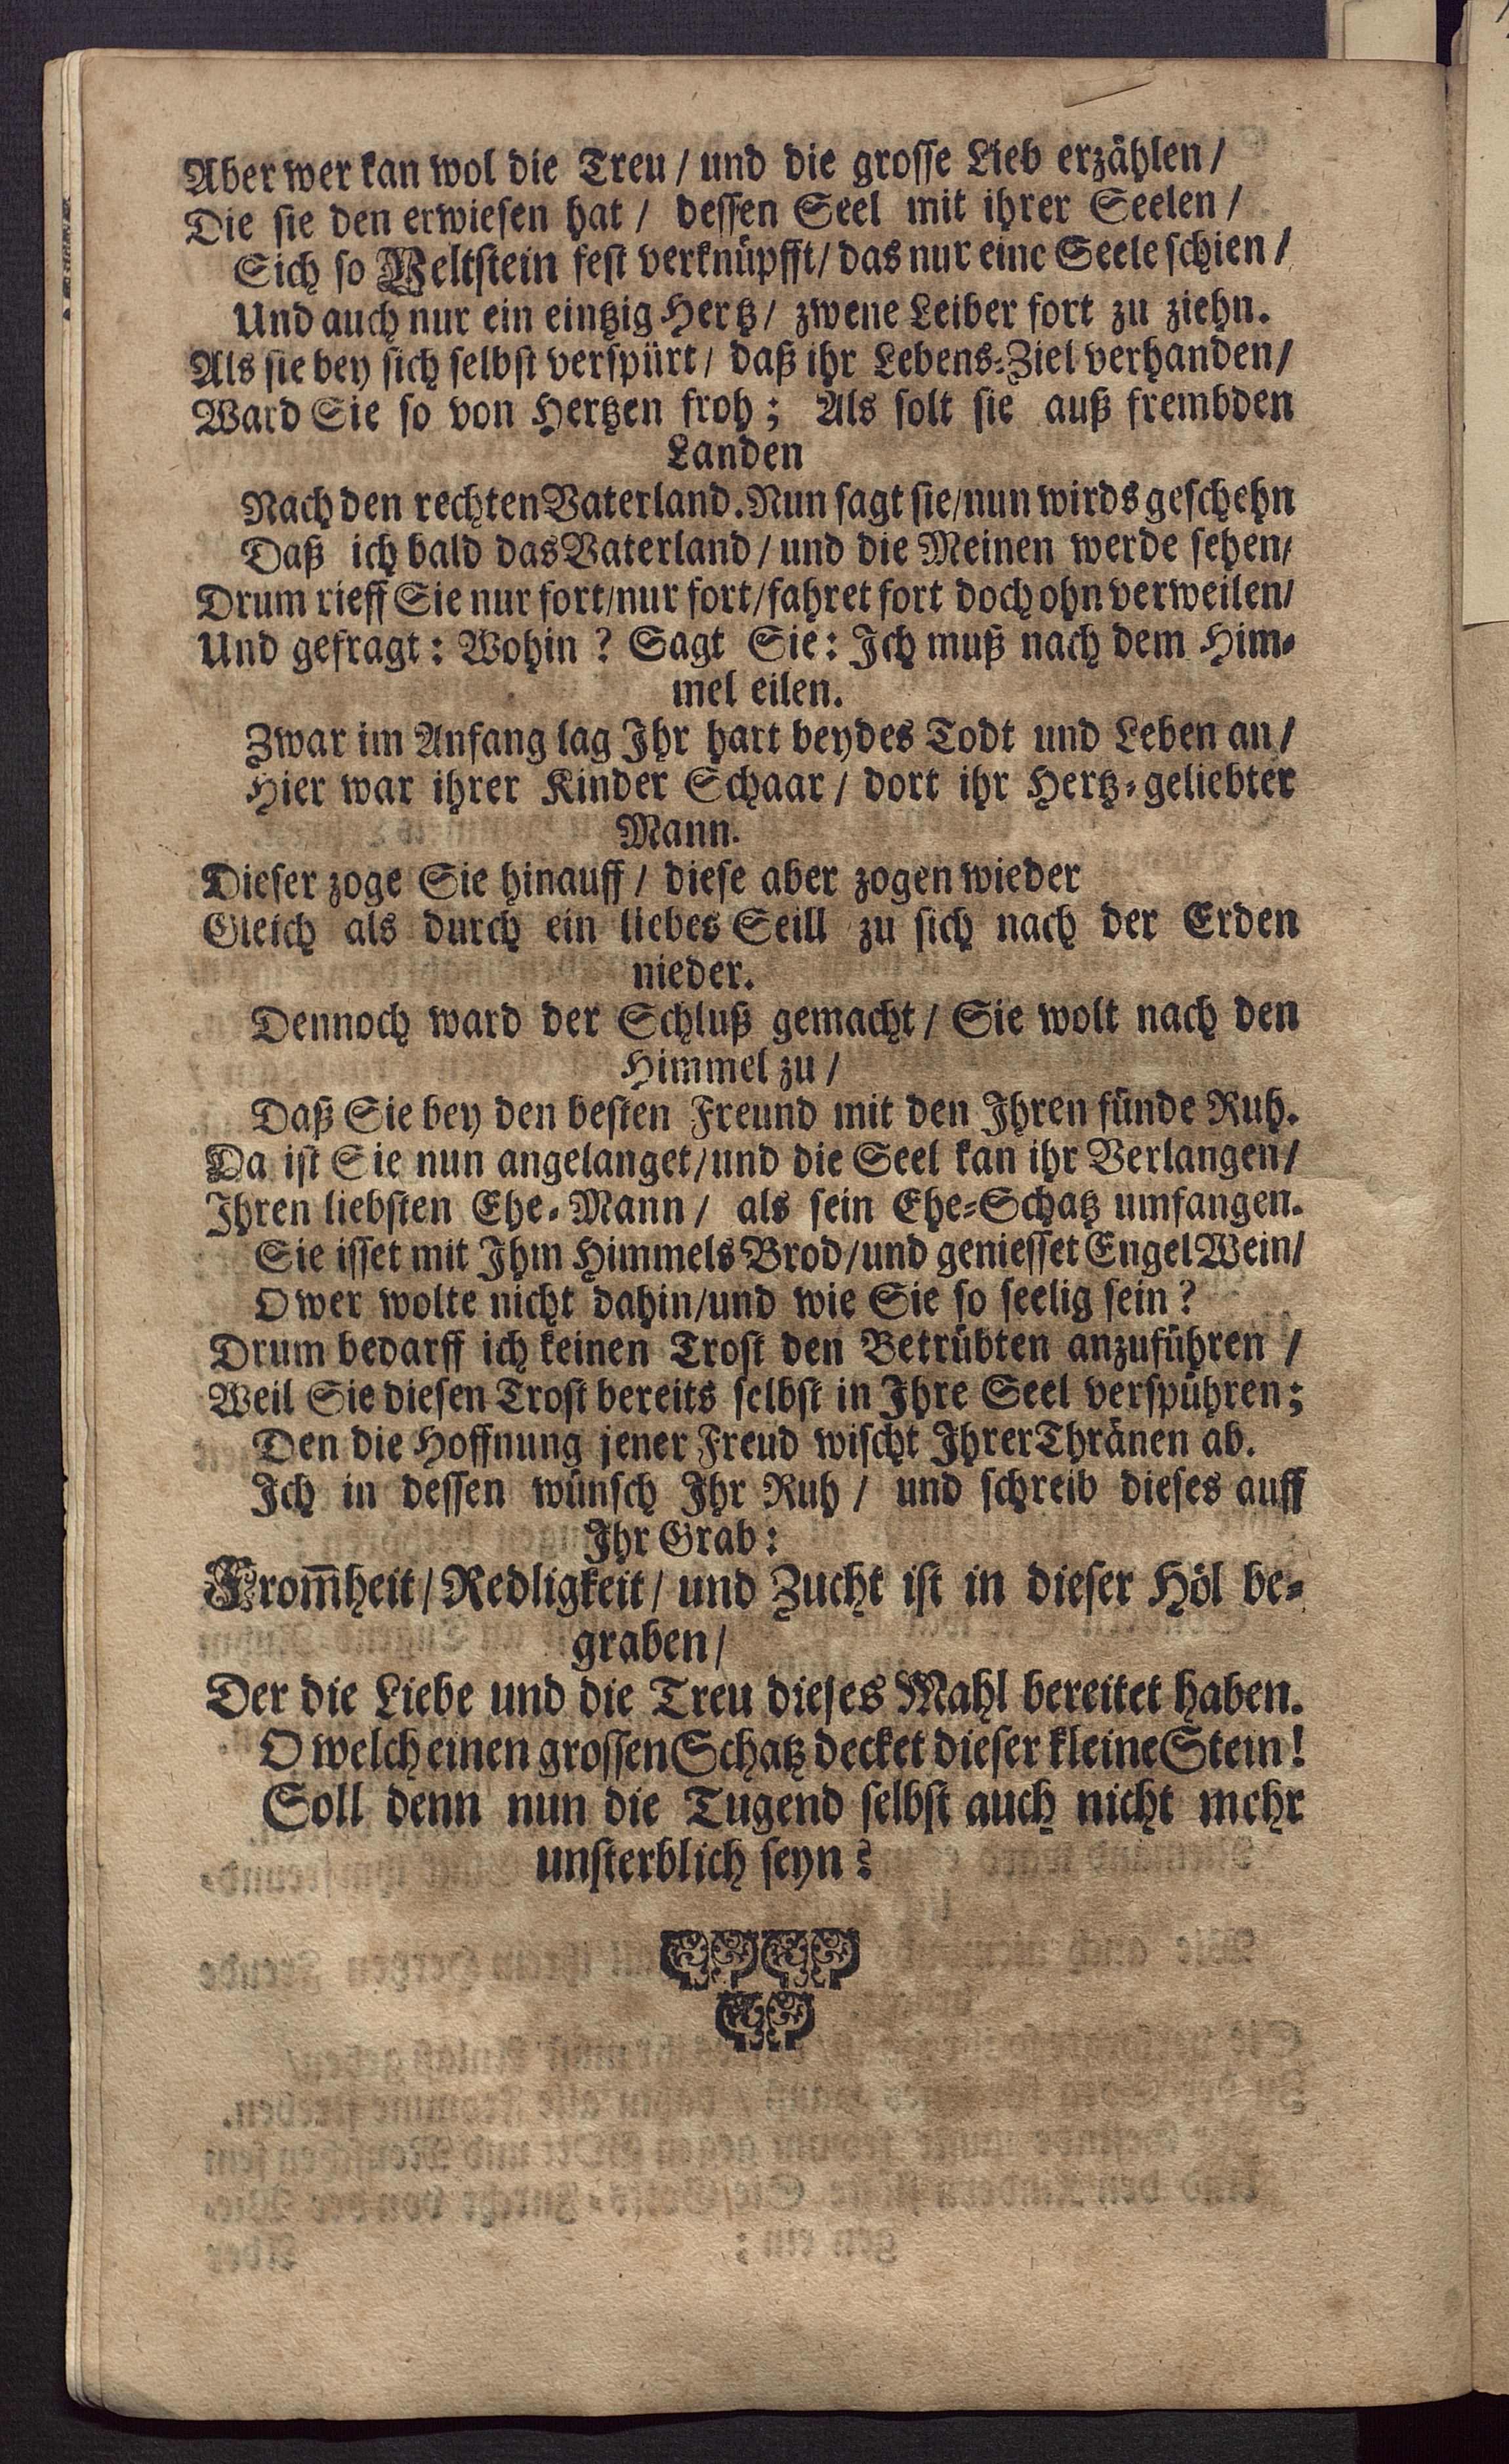 Aber wer kan wol die Treu / und die grosse Lieb erzählen /
Die sie den erwiesen hat / dessen Seel mit ihrer Seelen /
Sich so Weltstein fest verknüpfft / das nur eine Seele schien /
Und auch nur ein eintzig Hertz / zwene Leiber fort zu ziehn.
Als sie bey sich selbst verspürt / daß ihr Lebens-Ziel verhanden /
Ward Sie so von Hertzen froh ; Als solt sie auß frembden
Landen
Nach den rechten Vaterland. Nun sagt sie / nun wirds geschehn
Daß ich bald das Vaterland / und die Meinen werde sehen /
Drum rieff Sie nur fort / nur fort / fahret fort doch ohn verweilen /
Und gefragt : Wohin ? Sagt Sie : Ich muß nach dem Him-
mel eilen.
Zwar im Anfang lag Ihr hart beydes Todt und Leben an /
Hier war ihrer Kinder Schaar / dort ihr Hertz-geliebter
Mann.
Dieser zoge Sie hinauff / diese aber zogen wieder
Gleich als durch ein liebes Seill zu sich nach der Erden
nieder.
Dennoch ward der Schluß gemacht / Sie wolt nach den
Himmel zu /
Daß Sie bey den besten Freund mit den Ihren fünde Ruh.
Da ist Sie nun angelanget / und die Seel kan ihr Verlangen /
Ihren liebsten Ehe-Mann / als sein Ehe-Schatz umfangen.
Sie isset mit Ihm Himmels Brod / und geniesset Engel Wein /
O wer wolte nicht dahin / und wie Sie so seelig sein ?
Drum bedarff ich keinen Trost den Betrübten anzuführen /
Weil Sie diesen Trost bereits selbst in Ihre Seel verspühren ;
Den die Hoffnung jener Freud wischt Ihrer Thränen ab.
Ich in dessen wünsch Ihr Ruh / und schreib dieses auff
Ihr Grab :
From̄heit / Redligkeit / und Zucht ist in dieser Höl be-
graben /
Der die Liebe und die Treu dieses Mahl bereitet haben.
O welch einen grossen Schatz decket dieser kleine Stein !
Soll denn nun die Tugend selbst auch nicht mehr
unsterblich seyn ?